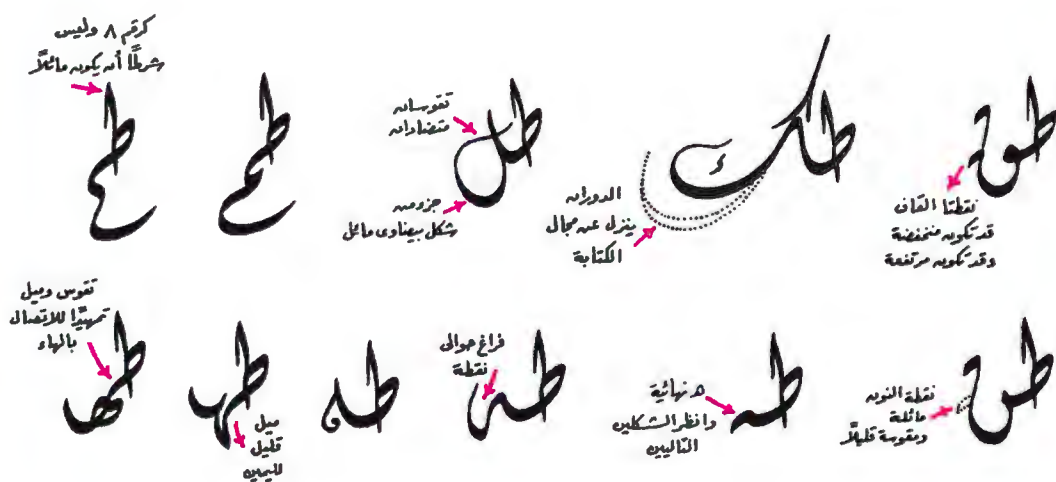 طق
نقطتا القاف
قد تكون منخفضة
وقد تكون مرتفعة
طك
الدوران
ينزل عن مجال
الكتابة
طل
تقوسان
متضادان
جزء من
شكل بيضاوى مائل
طم
طم
كرقم ٨ وليس
شرطًا أن يكون مائلاً
طن
نقطة النون
مائلة
ومقوسة قليلاً
طه
ه نهائية
وانظر الشكلين
التاليين
طه
فراغ حوالى
نقطة
طه
ميل
قليل
لليمين
تقوس وميل
تمهيدًا للاتصال
بالهاء